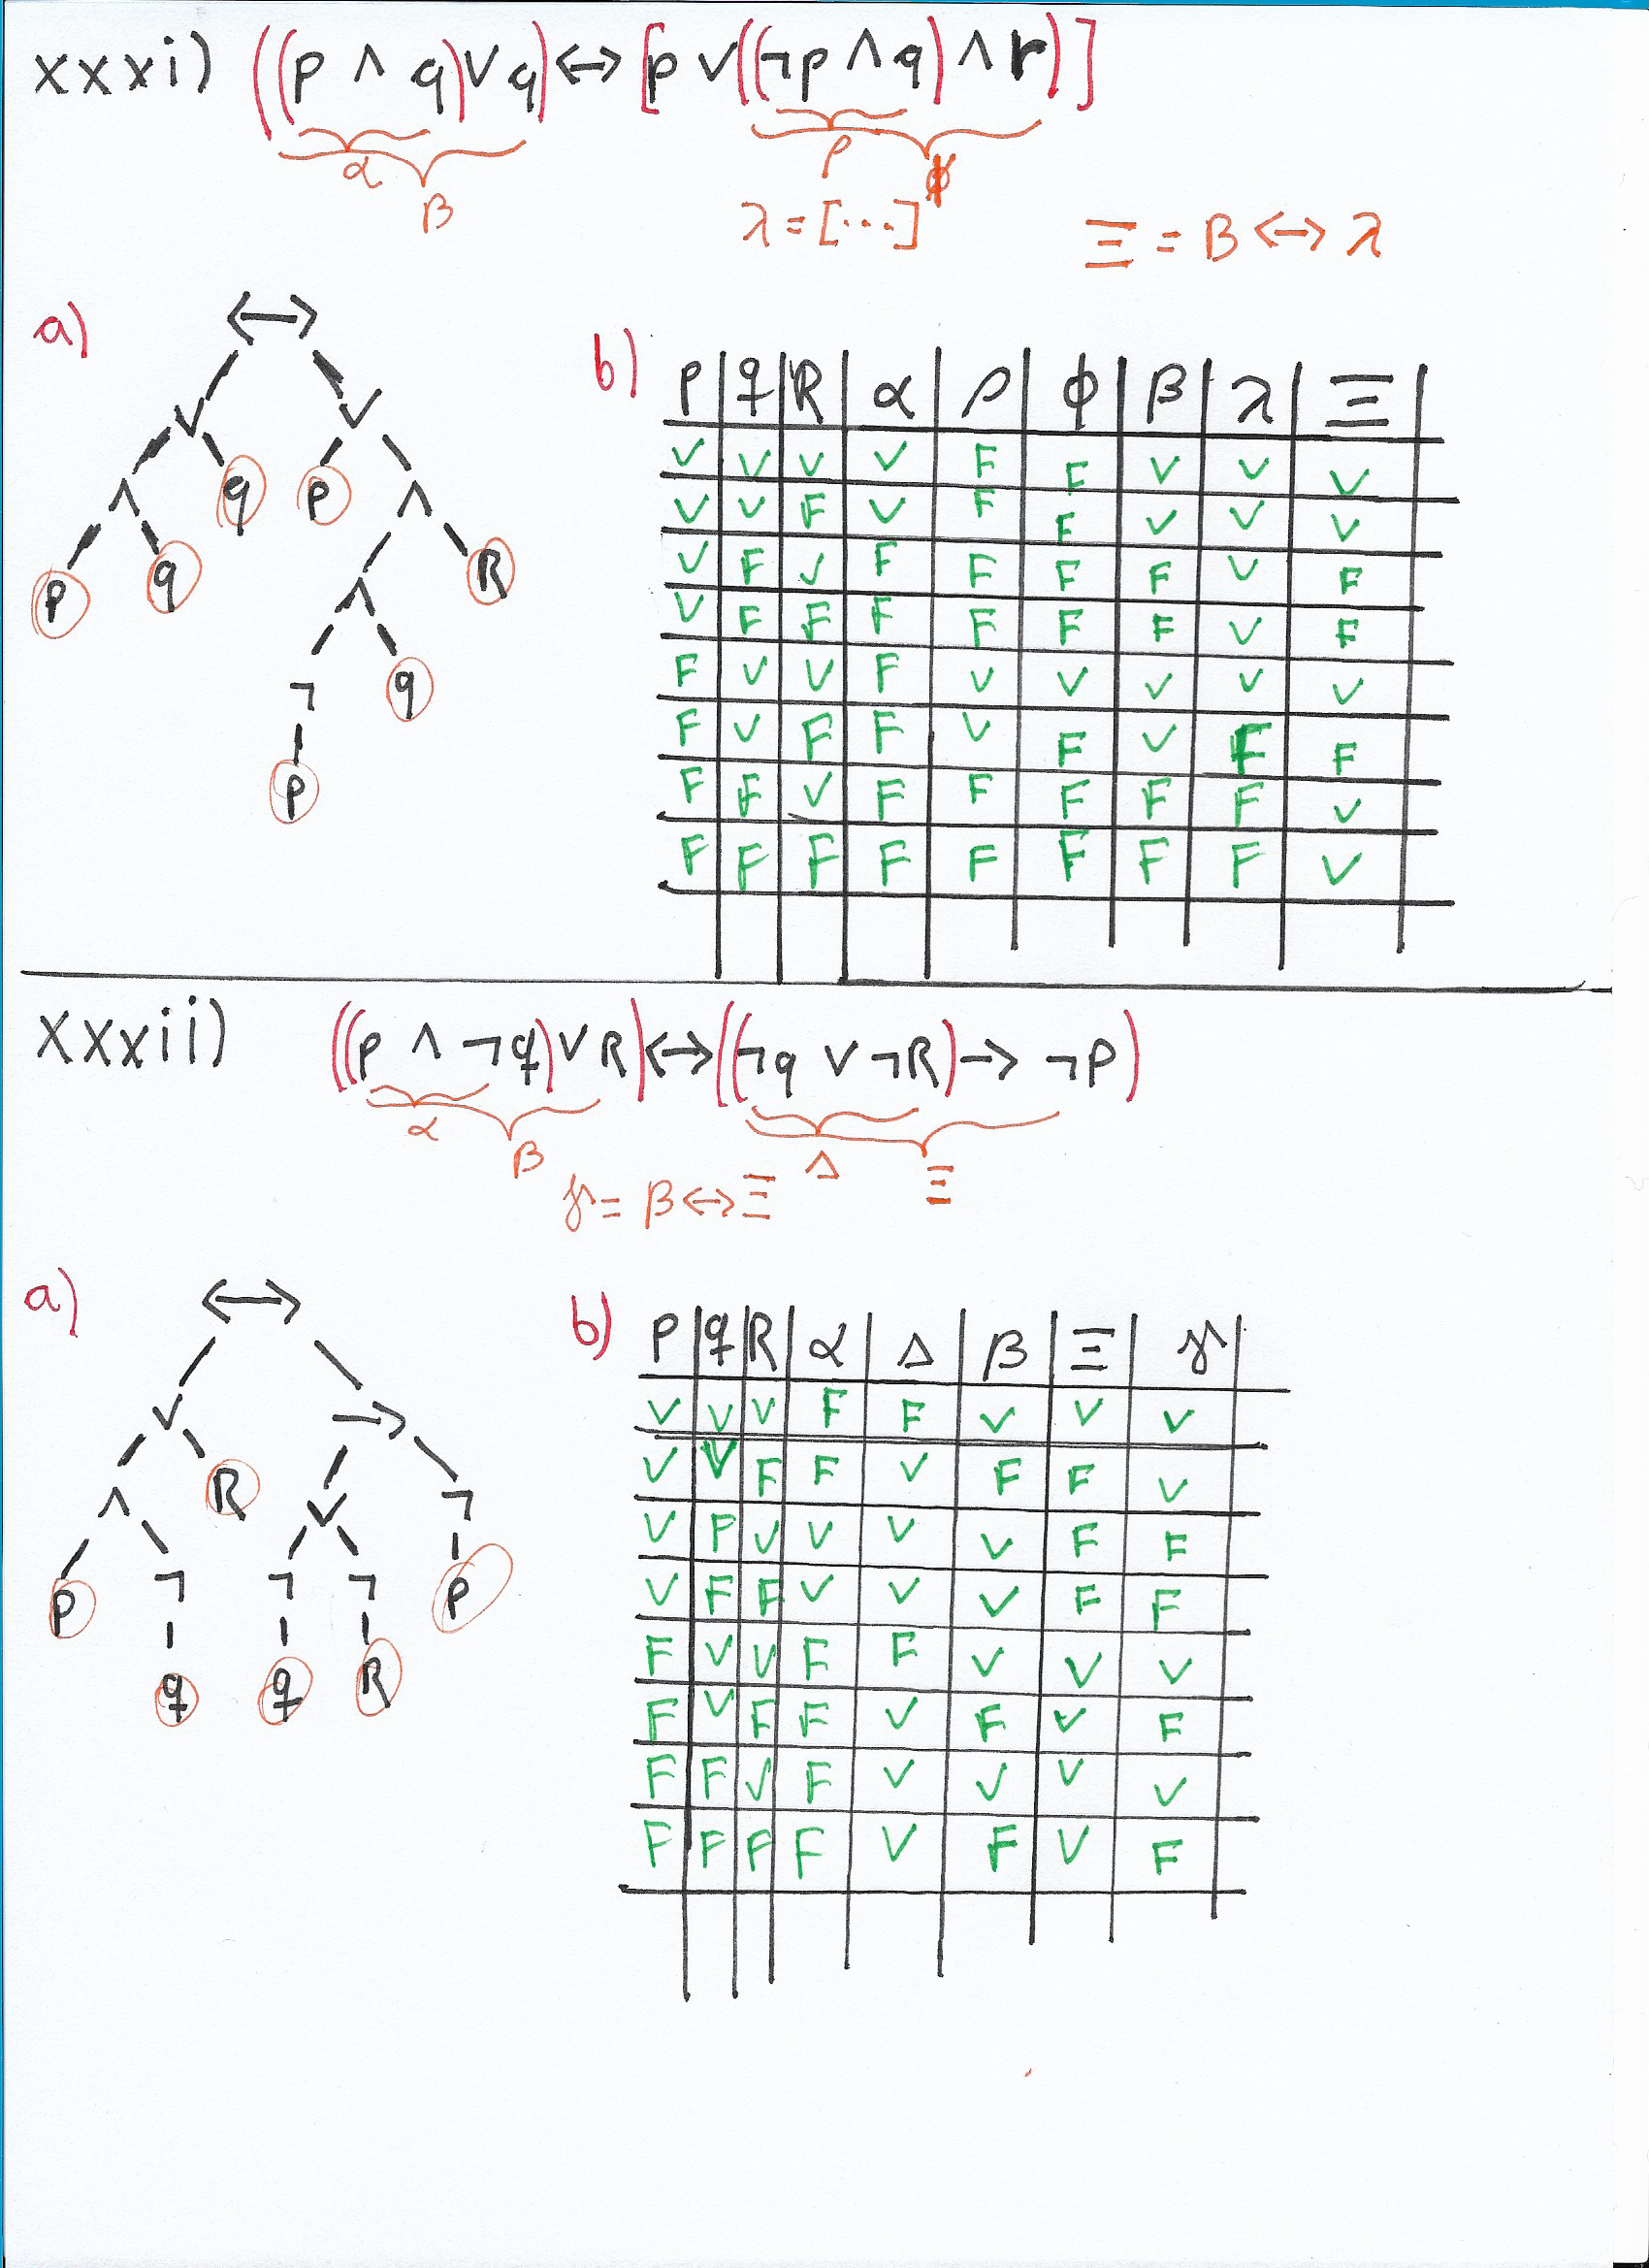 xxxi) ((p ∧ q) ∨ q) ↔ [p ∨ ((¬p ∧ q) ∧ r)]
α β ρ ϕ
λ = [...] Ξ = β ↔ λ
a)
↔
∨ ∨
∧ q p ∧
p q ∧ R
¬ q
p
b)
P q R α ρ ϕ β λ Ξ
V V V V F F V V V
V V F V F F V V V
V F V F F F F V F
V F F F F F F V F
F V V F V V V V V
F V F F V F V F F
F F V F F F F F V
F F F F F F F F V
xxxii) ((p ∧ ¬q) ∨ R) ↔ ((¬q ∨ ¬R) → ¬P)
α β Δ Ξ
γ = β ↔ Ξ
a)
↔
∨ →
∧ R ∨ ¬
P ¬ ¬ ¬ P
q q R
b)
P q R α Δ β Ξ γ
V V V F F V V V
V V F F V F F V
V F V V V V F F
V F F V V V F F
F V V F F V V V
F V F F V F V F
F F V F V V V V
F F F F V F V F